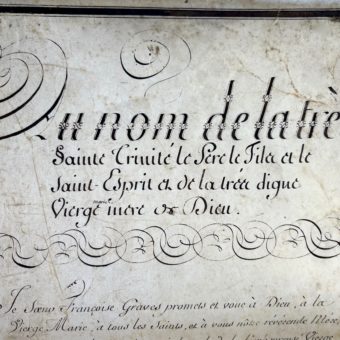 Au nom de la trè
Sainte Trinité le Père le Fils et le
Saint-Esprit et de la trée digue
Vierge marie mere de Dieu.
Je Sœur Françoise Graves promets et voue à Dieu, à la
Vierge Marie, a tous les Saints, et à vous nôtre révérende Mère,
Vierge